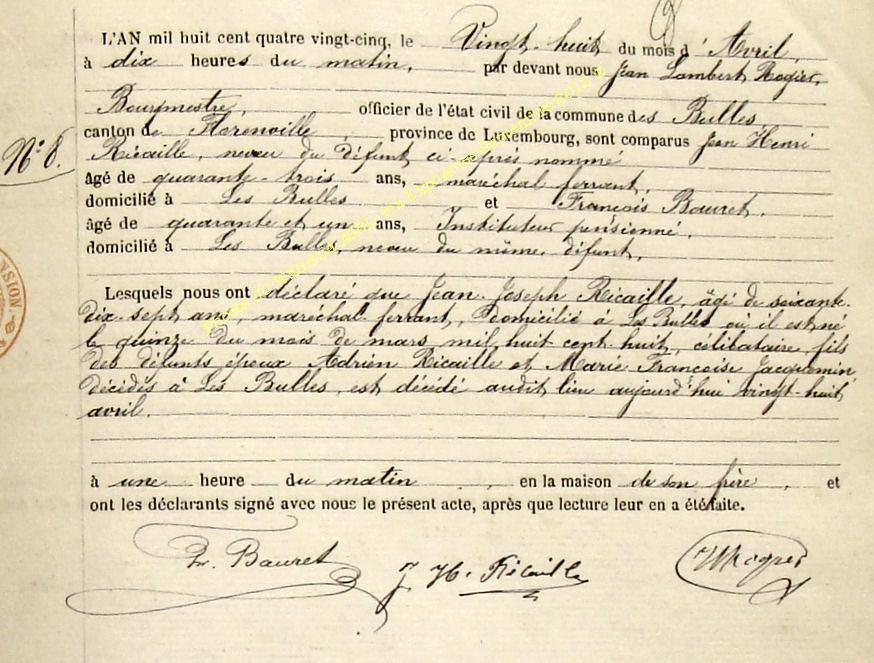 L'AN mil huit cent quatre vingt-cinq, le Vingt-huit du mois d'Avril,
à dix heures du matin, par devant nous Jean Lambert Rogier,
Bourgmestre, officier de l'état civil de la commune des Bulles,
canton de Florenville, province de Luxembourg, sont comparus Jean Henri
N° 8. Ricaille, neveu du défunt ci-après nommé
âgé de quarante-trois ans, maréchal ferrant,
domicilié à Les Bulles et François Bauret,
âgé de quarante et un ans, Instituteur pensionné,
domicilié à Les Bulles, neveu du même défunt,
Lesquels nous ont déclaré que Jean-Joseph Ricaille, âgé de soixante-
dix-sept ans, maréchal-ferrant, domicilié à Les Bulles où il est né
le quinze du mois de mars mil huit cent huit, célibataire, fils
des défunts époux Adrien Ricaille et Marie Françoise Jacquemin
décédés à Les Bulles, est décédé audit lieu aujourd'hui vingt-huit
avril.
à une heure du matin, en la maison de son frère, et
ont les déclarants signé avec nous le présent acte, après que lecture leur en a été faite.
Fr. Bauret J. H. Ricaille